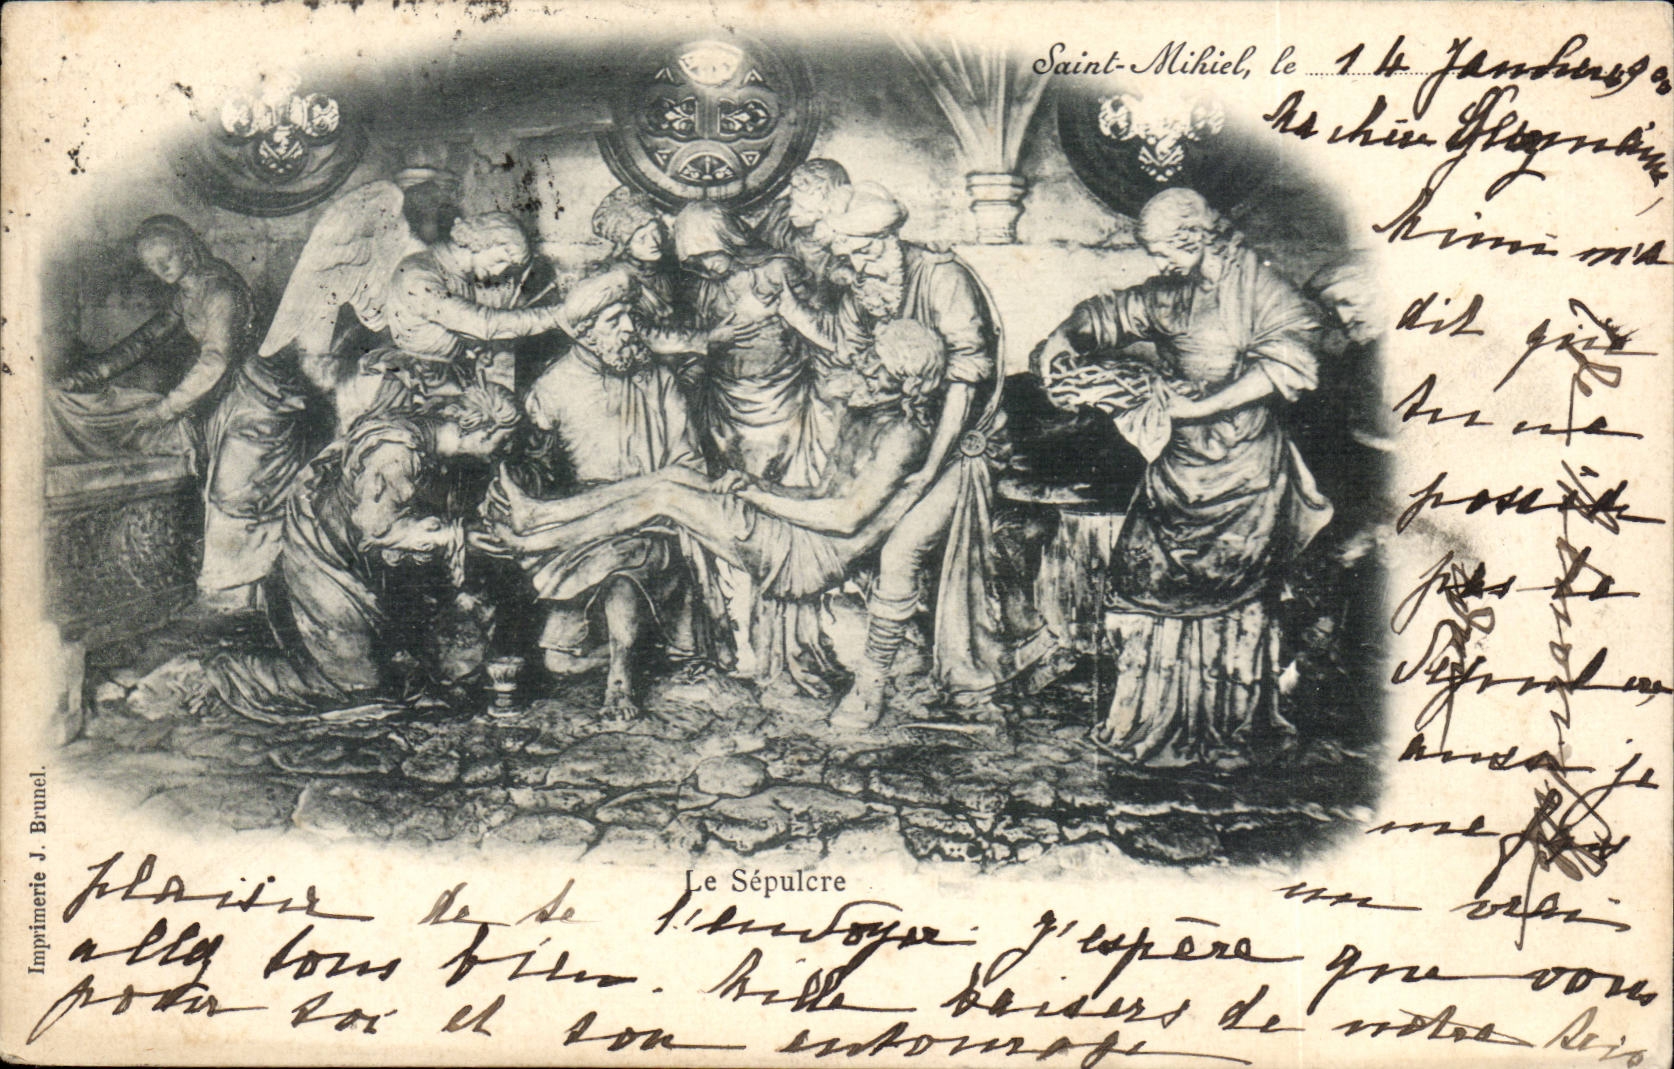 Saint-Mihiel, le 14 Janvier
Ma chère
Mimi m'a
dit que
tu ne
possède
pas le
Sépulcre,
aussi je
me fais
un vrai
plaisir de te l'envoyer. J'espère que vous
allez tous bien. Mille baisers de notre
pour toi et ton entourage
Le Sépulcre
Imprimerie J. Brunel.